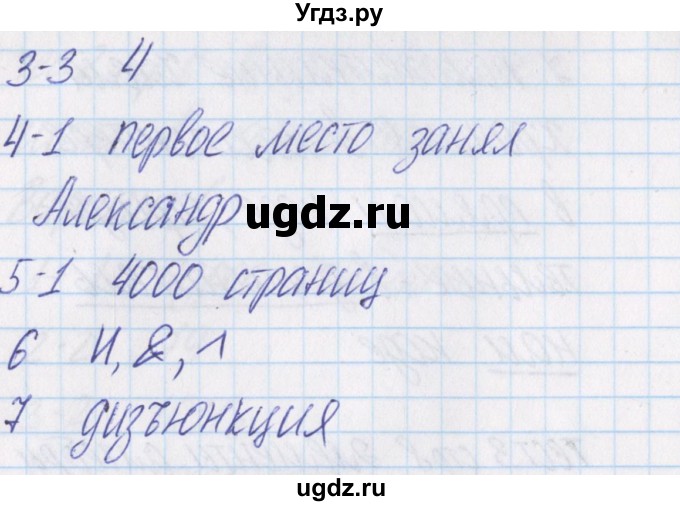 Угдз.ру
3-3 4
4-1 первое место занял
Александр
ugdz.ru
5-1 4000 страниц
6 И, &, ^
7 дизъюнкция
ugdz.ru